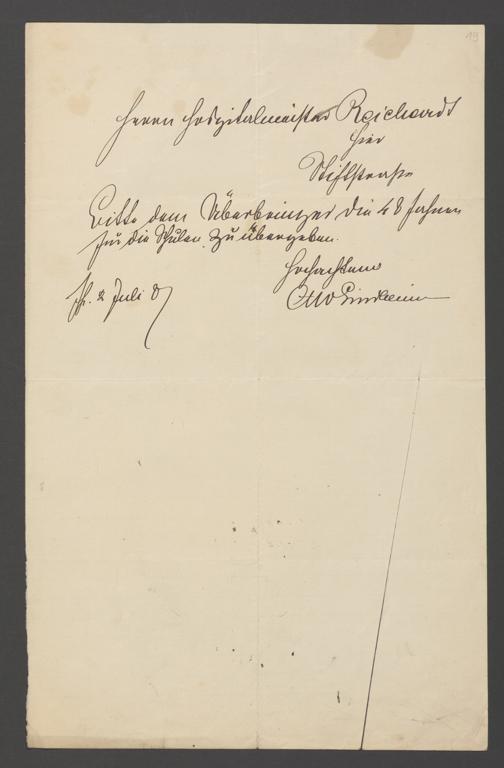 19
Herrn Hospitalmeister Reichardt
hier
Stiftstraße
Bitte dem Überbringer die 48 Fahnen
für die Schulen zu übergeben.
Hochachtend
Otto
Ff. 2 Juli 87